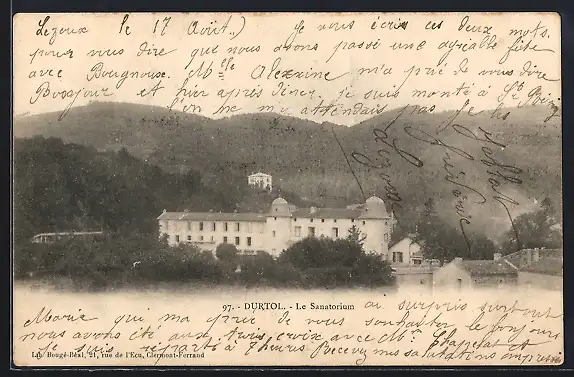 Lezoux le 17 Août.
Je vous écris ces deux mots
pour vous dire que nous avons passé une agréable fête
avec Bougnouse. Melle Alexine m'a prié de vous dire
Bonjour et hier après diner je suis monté à St
on ne m'attendais pas
97. - DURTOL. - Le Sanatorium
au surpris surtout
Marie qui m'a prié de vous souhaiter le bonjour
nous avons été aux trois croix avec Mr.
Je suis reparti à 7 heures Recevez mes salutations
Lib. Bougé-Béal, 21, rue de l'Ecu, Clermont-Ferrand